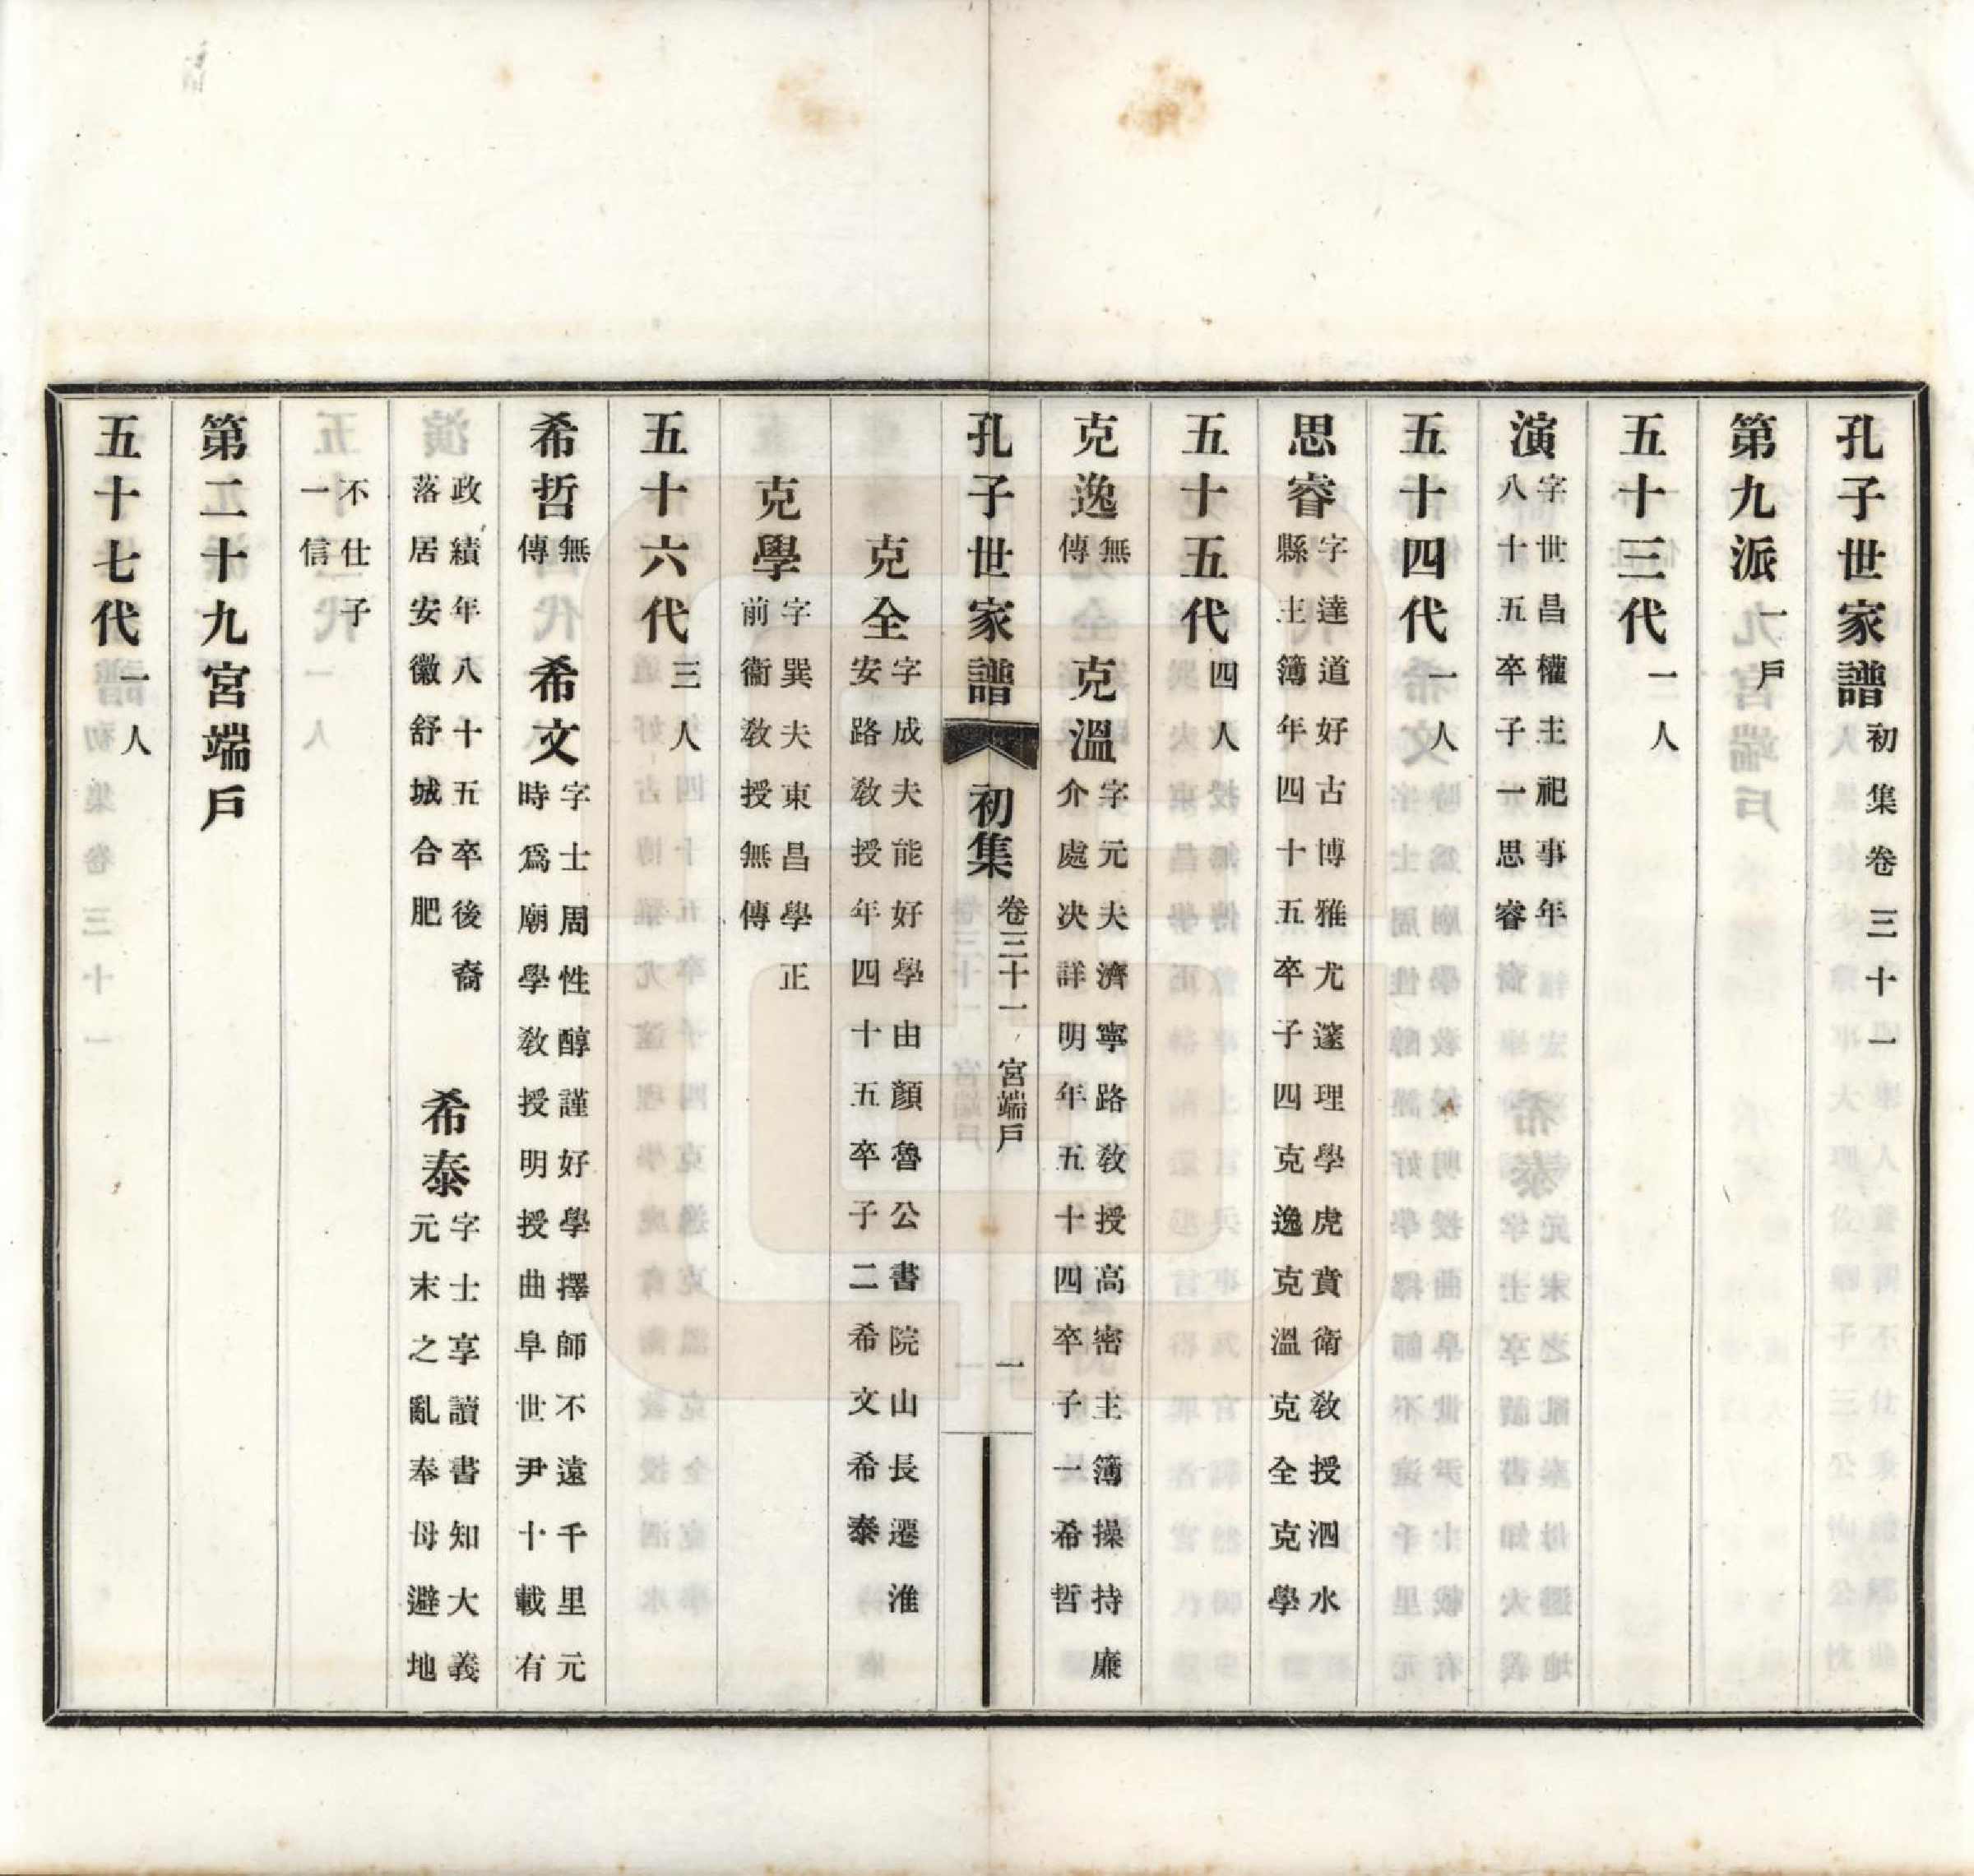 孔子世家譜初集卷三十一
第九派一戶
五十三代一人
演字世昌權主祀事年八十五卒子一思睿
五十四代一人
思睿字達道好古博雅尤邃理學虎賁衛教授泗水縣主簿年四十五卒子四克逸克溫克全克學
五十五代四人
克逸無傳 克溫字元夫濟寧路教授高密主簿操持廉介處決詳明年五十四卒子一希哲
孔子世家譜 初集 卷三十一 宮端戶 一
克全字成夫能好學由顏魯公書院山長遷淮安路教授年四十五卒子二希文希泰
克學字巽夫東昌學正前衞教授無傳
五十六代三人
希哲無傳 希文字士周性醇謹好學擇師不遠千里元時爲廟學教授明授曲阜世尹十載有
政績年八十五卒後裔落居安徽舒城合肥 希泰字士享讀書知大義元末之亂奉母避地
不仕子一信
第二十九宮端戶
五十七代一人